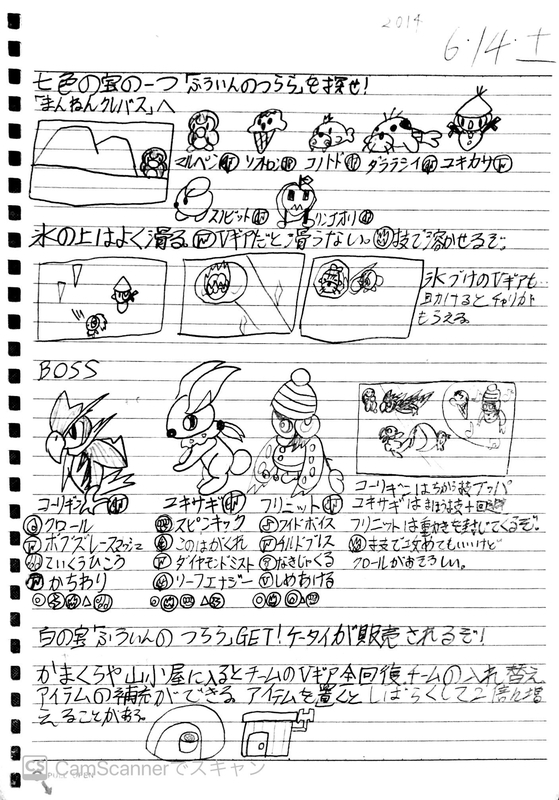 2014
6.14.土
七色の宝の一つ「ふういんのつらら」を探せ!
「まんねんクレバス」へ
マルペン ソオロン コノトド ダララシイ ユキカサ
スノビット リンゴオリ
氷の上はよく滑る のVギアだと滑らない。 技で溶かせるぞ。
氷づけのVギアも‥
助けるとチャリンが
もらえる。
BOSS
コーリギン ユキサギ フリニット
クロール スピンキック ワイドボイス
ボブスレースマッシュ このはがくれ チルドブレス
ていくうひこう ダイヤモンドミスト なきじゃくる
かちわり リーフエナジー しめあげる
コーリギンはちから技ブッパ
ユキサギはまほう技+回避
フリニットは動きを封じてくるぞ。
技で攻めてもいいけど
クロールがおそろしい。
白の宝「ふういんのつらら」GET!ケータイが販売されるぞ!
かまくらや山小屋に入るとチームのVギア全回復 チームの入れ替え
アイテムの補充ができる。アイテムを置くとしばらくして2倍に増
えることがある。
CS CamScannerでスキャン